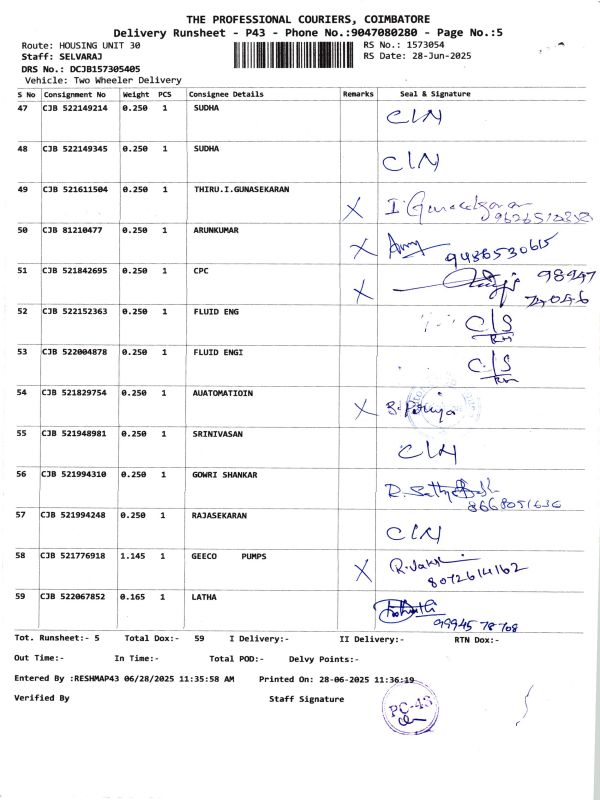 THE PROFESSIONAL COURIERS, COIMBATORE
Delivery Runsheet - P43 - Phone No.:9047080280 - Page No.:5
Route: HOUSING UNIT 30 RS No.: 1573054
Staff: SELVARAJ RS Date: 28-Jun-2025
DRS No.: DCJB157305405
Vehicle: Two Wheeler Delivery
S No Consignment No Weight PCS Consignee Details Remarks Seal & Signature
47 CJB 522149214 0.250 1 SUDHA C/N
48 CJB 522149345 0.250 1 SUDHA C/N
49 CJB 521611504 0.250 1 THIRU.I.GUNASEKARAN X I. Gunasekaran
50 CJB 81210477 0.250 1 ARUNKUMAR X
9486530615
51 CJB 521842695 0.250 1 CPC X 98947
74046
52 CJB 522152363 0.250 1 FLUID ENG C/S
53 CJB 522004878 0.250 1 FLUID ENGI C/S
54 CJB 521829754 0.250 1 AUATOMATIOIN X
55 CJB 521948981 0.250 1 SRINIVASAN C/N
56 CJB 521994310 0.250 1 GOWRI SHANKAR
8668051636
57 CJB 521994248 0.250 1 RAJASEKARAN C/N
58 CJB 521776918 1.145 1 GEECO PUMPS X
8072614162
59 CJB 522067852 0.165 1 LATHA
99945 78708
Tot. Runsheet:- 5 Total Dox:- 59 I Delivery:- II Delivery:- RTN Dox:-
Out Time:- In Time:- Total POD:- Delvy Points:-
Entered By :RESHMAP43 06/28/2025 11:35:58 AM Printed On: 28-06-2025 11:36:19
Verified By Staff Signature
PC-43